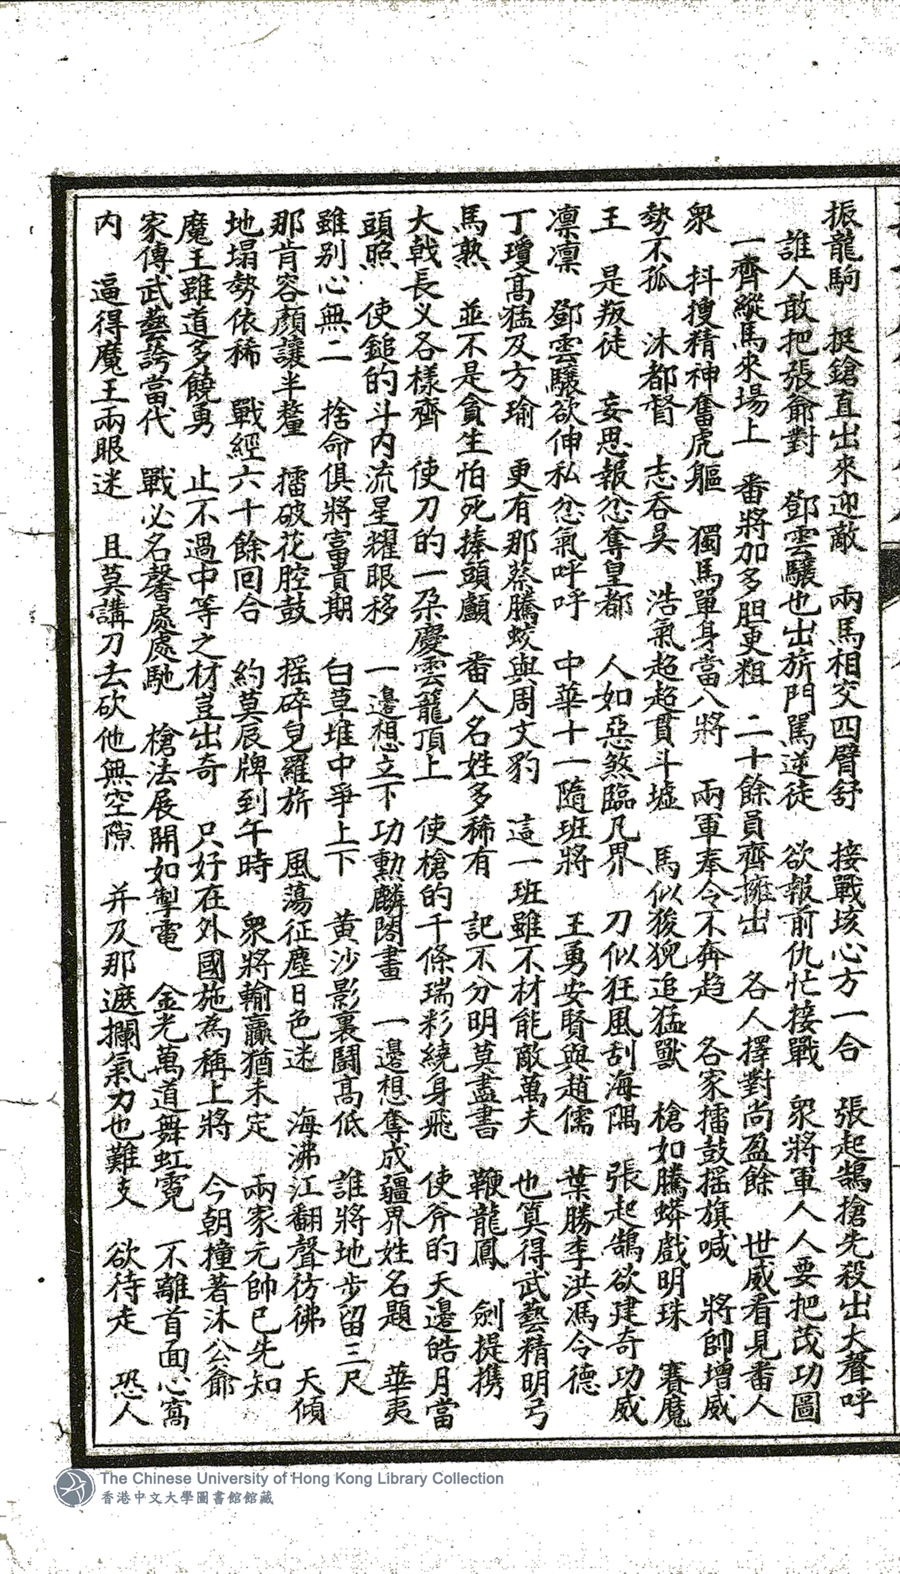 振龍駒　挺鎗直出來迎敵　兩馬相交四臂舒　接戰垓心方一合　張起鵠搶先殺出大聲呼
誰人敢把張爺對　鄧雲驤也出旂門罵逆徒　欲報前仇忙接戰　衆將軍人人要把茂功圖
一齊縱馬來場上　番將加多胆更粗　二十餘員齊擁出　各人擇對尚盈餘　世威看見畨人
衆　抖搜精神奮虎軀　獨馬單身當八將　兩軍奉令不奔趋　各家擂鼓摇旗喊　將帥增威
勢不孤　沐都督　志吞吳　浩氣超超貫斗墟　馬似狻猊追猛獸　槍如騰蟒戲明珠　賽魔
王　是叛徒　妄思報忿奪皇都　人如惡煞臨凡界　刀似狂風刮海隅　張起鵠欲建奇功威
凛凛　鄧雲驤欲伸私忿氣呼呼　中華十一隨班將　王勇安賢與趙儒　葉勝李洪馮令德
丁瓊高猛及方瑜　更有那蔡騰蛟與周文豹　這一班雖不材能敵萬夫　也算得武藝精明弓
馬熟　並不是貪生怕死捧頭顱　畨人名姓多稀有　記不分明莫盡書　鞭龍鳳　劍提携
大戟長义各樣齊　使刀的一朶慶雲籠頂上　使槍的千條瑞彩繞身飛　使斧的天邊皓月當
頭照　使鎚的斗内流星耀眼移　一邊想立下功勲麟閣畫　一邊想奪成疆界姓名題　華夷
雖别心無二　捨命俱將富貴期　白草堆中爭上下　黄沙影裏鬪高低　誰將地步留三尺
那肯容顏讓半釐　擂破花腔鼓　摇碎皃羅旂　風蕩征塵日色迷　海沸江翻聲彷彿　天傾
地塌勢依稀　戰經六十餘回合　約莫辰牌到午時　衆將輸贏猶未定　兩家元帥已先知
魔王雖道多饒勇　止不過中等之材豈出奇　只好在外國施為稱上將　今朝撞著沐公爺
家傳武藝誇當代　戰必名馨處處馳　槍法展開如掣電　金光萬道舞虹霓　不離首面心窩
内　逼得魔王兩眼迷　且莫講刀去砍他無空隙　并及那遮攔氣力也難支　欲待走　恐人
The Chinese University of Hong Kong Library Collection
香港中文大學圖書館館藏